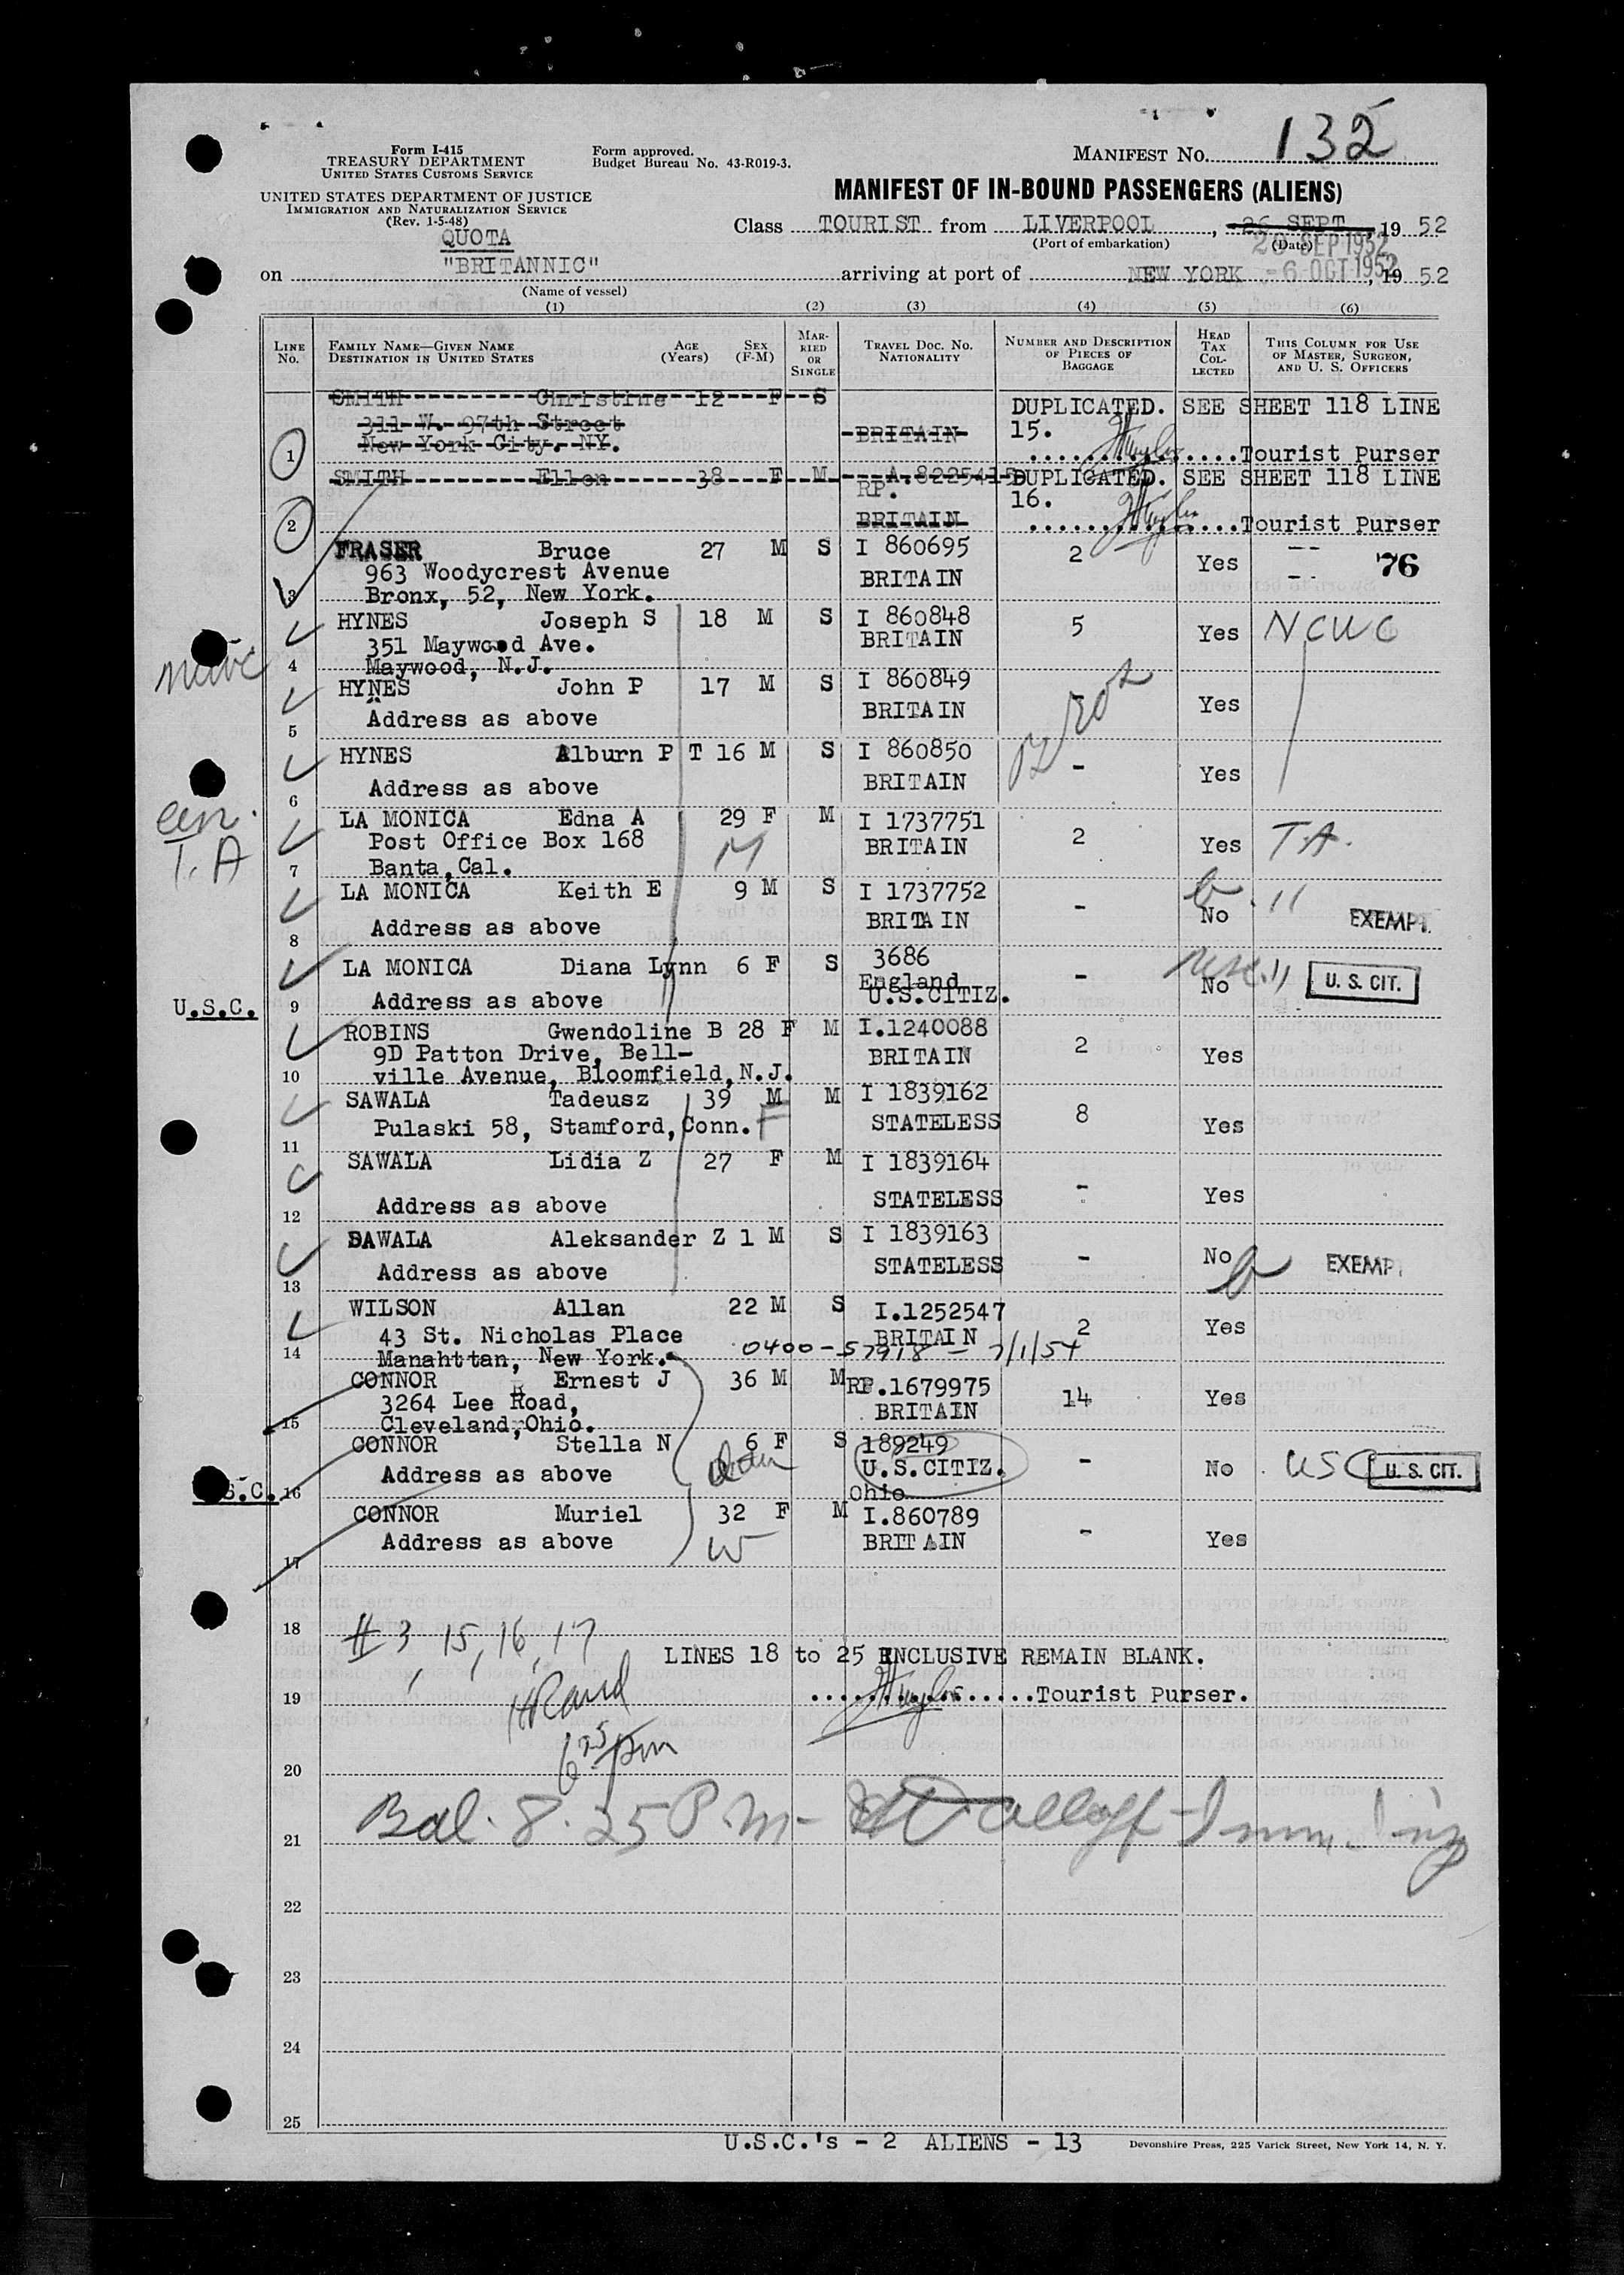 132
Form I-415
TREASURY DEPARTMENT
UNITED STATES CUSTOMS SERVICE
Form approved.
Budget Bureau No. 43-R019-3.
MANIFEST No.
UNITED STATES DEPARTMENT OF JUSTICE
IMMIGRATION AND NATURALIZATION SERVICE
(Rev. 1-5-48)
MANIFEST OF IN-BOUND PASSENGERS (ALIENS)
QUOTA
Class TOURIST from LIVERPOOL, 26 SEPT, 19 52
(Port of embarkation) (Date)
SEP 1952
on "BRITANNIC" arriving at port of NEW YORK -6 OCT 1952, 19 52
(Name of vessel)
(1) (2) (3) (4) (5) (6)
LINE No. FAMILY NAME—GIVEN NAME DESTINATION IN UNITED STATES AGE (Years) SEX (F-M) MARRIED OR SINGLE TRAVEL DOC. NO. NATIONALITY NUMBER AND DESCRIPTION OF PIECES OF BAGGAGE HEAD TAX COLLECTED THIS COLUMN FOR USE OF MASTER, SURGEON, AND U. S. OFFICERS
SMITH Christine 12 F S DUPLICATED. SEE SHEET 118 LINE
311 W. 97th Street BRITAIN 15.
1 New York City. NY. Tourist Purser
SMITH Ellen 38 F M A.8225415 DUPLICATED. SEE SHEET 118 LINE
RP. 16.
2 BRITAIN Tourist Purser
FRASER Bruce 27 M S I 860695 2 Yes 76
963 Woodycrest Avenue BRITAIN
3 Bronx, 52, New York.
HYNES Joseph S 18 M S I 860848 5 Yes NCWC
351 Maywood Ave. BRITAIN
4 Maywood, N.J.
HYNES John P 17 M S I 860849 - Yes
Address as above BRITAIN
5
HYNES Alburn P T 16 M S I 860850 - Yes
Address as above BRITAIN
6
LA MONICA Edna A 29 F M I 1737751 2 Yes T.A.
T.A
Post Office Box 168 BRITAIN
7 Banta, Cal.
LA MONICA Keith E 9 M S I 1737752 - No " EXEMPT.
Address as above BRITAIN
8
LA MONICA Diana Lynn 6 F S 3686 - No " U. S. CIT.
England
U.S.C. 9 Address as above U.S.CITIZ.
ROBINS Gwendoline B 28 F M I.1240088 2 Yes
9D Patton Drive, Bell- BRITAIN
10 ville Avenue, Bloomfield, N.J.
SAWALA Tadeusz 39 M M I 1839162 8 Yes
Pulaski 58, Stamford, Conn. F STATELESS
11
SAWALA Lidia Z 27 F M I 1839164 - Yes
Address as above STATELESS
12
SAWALA Aleksander Z 1 M S I 1839163 - No EXEMP
Address as above STATELESS
13
WILSON Allan 22 M S I.1252547 2 Yes
43 St. Nicholas Place BRITAIN
14 Manahttan, New York. 0400-57918 - 7/1/54
CONNOR Ernest J 36 M M RP.1679975 14 Yes
3264 Lee Road, BRITAIN
15 Cleveland, Ohio.
CONNOR Stella N 6 F S 189249 - No USC U. S. CIT.
Address as above U.S.CITIZ.
S.C. 16 Ohio
CONNOR Muriel 32 F M I.860789 - Yes
Address as above W BRITAIN
17
18 # 3, 15, 16, 17
LINES 18 to 25 INCLUSIVE REMAIN BLANK.
19 Tourist Purser.
6 25 pm
20
21 Bal. 8.25 P.M-
22
23
24
25
U.S.C.'s - 2 ALIENS - 13
Devonshire Press, 225 Varick Street, New York 14, N. Y.